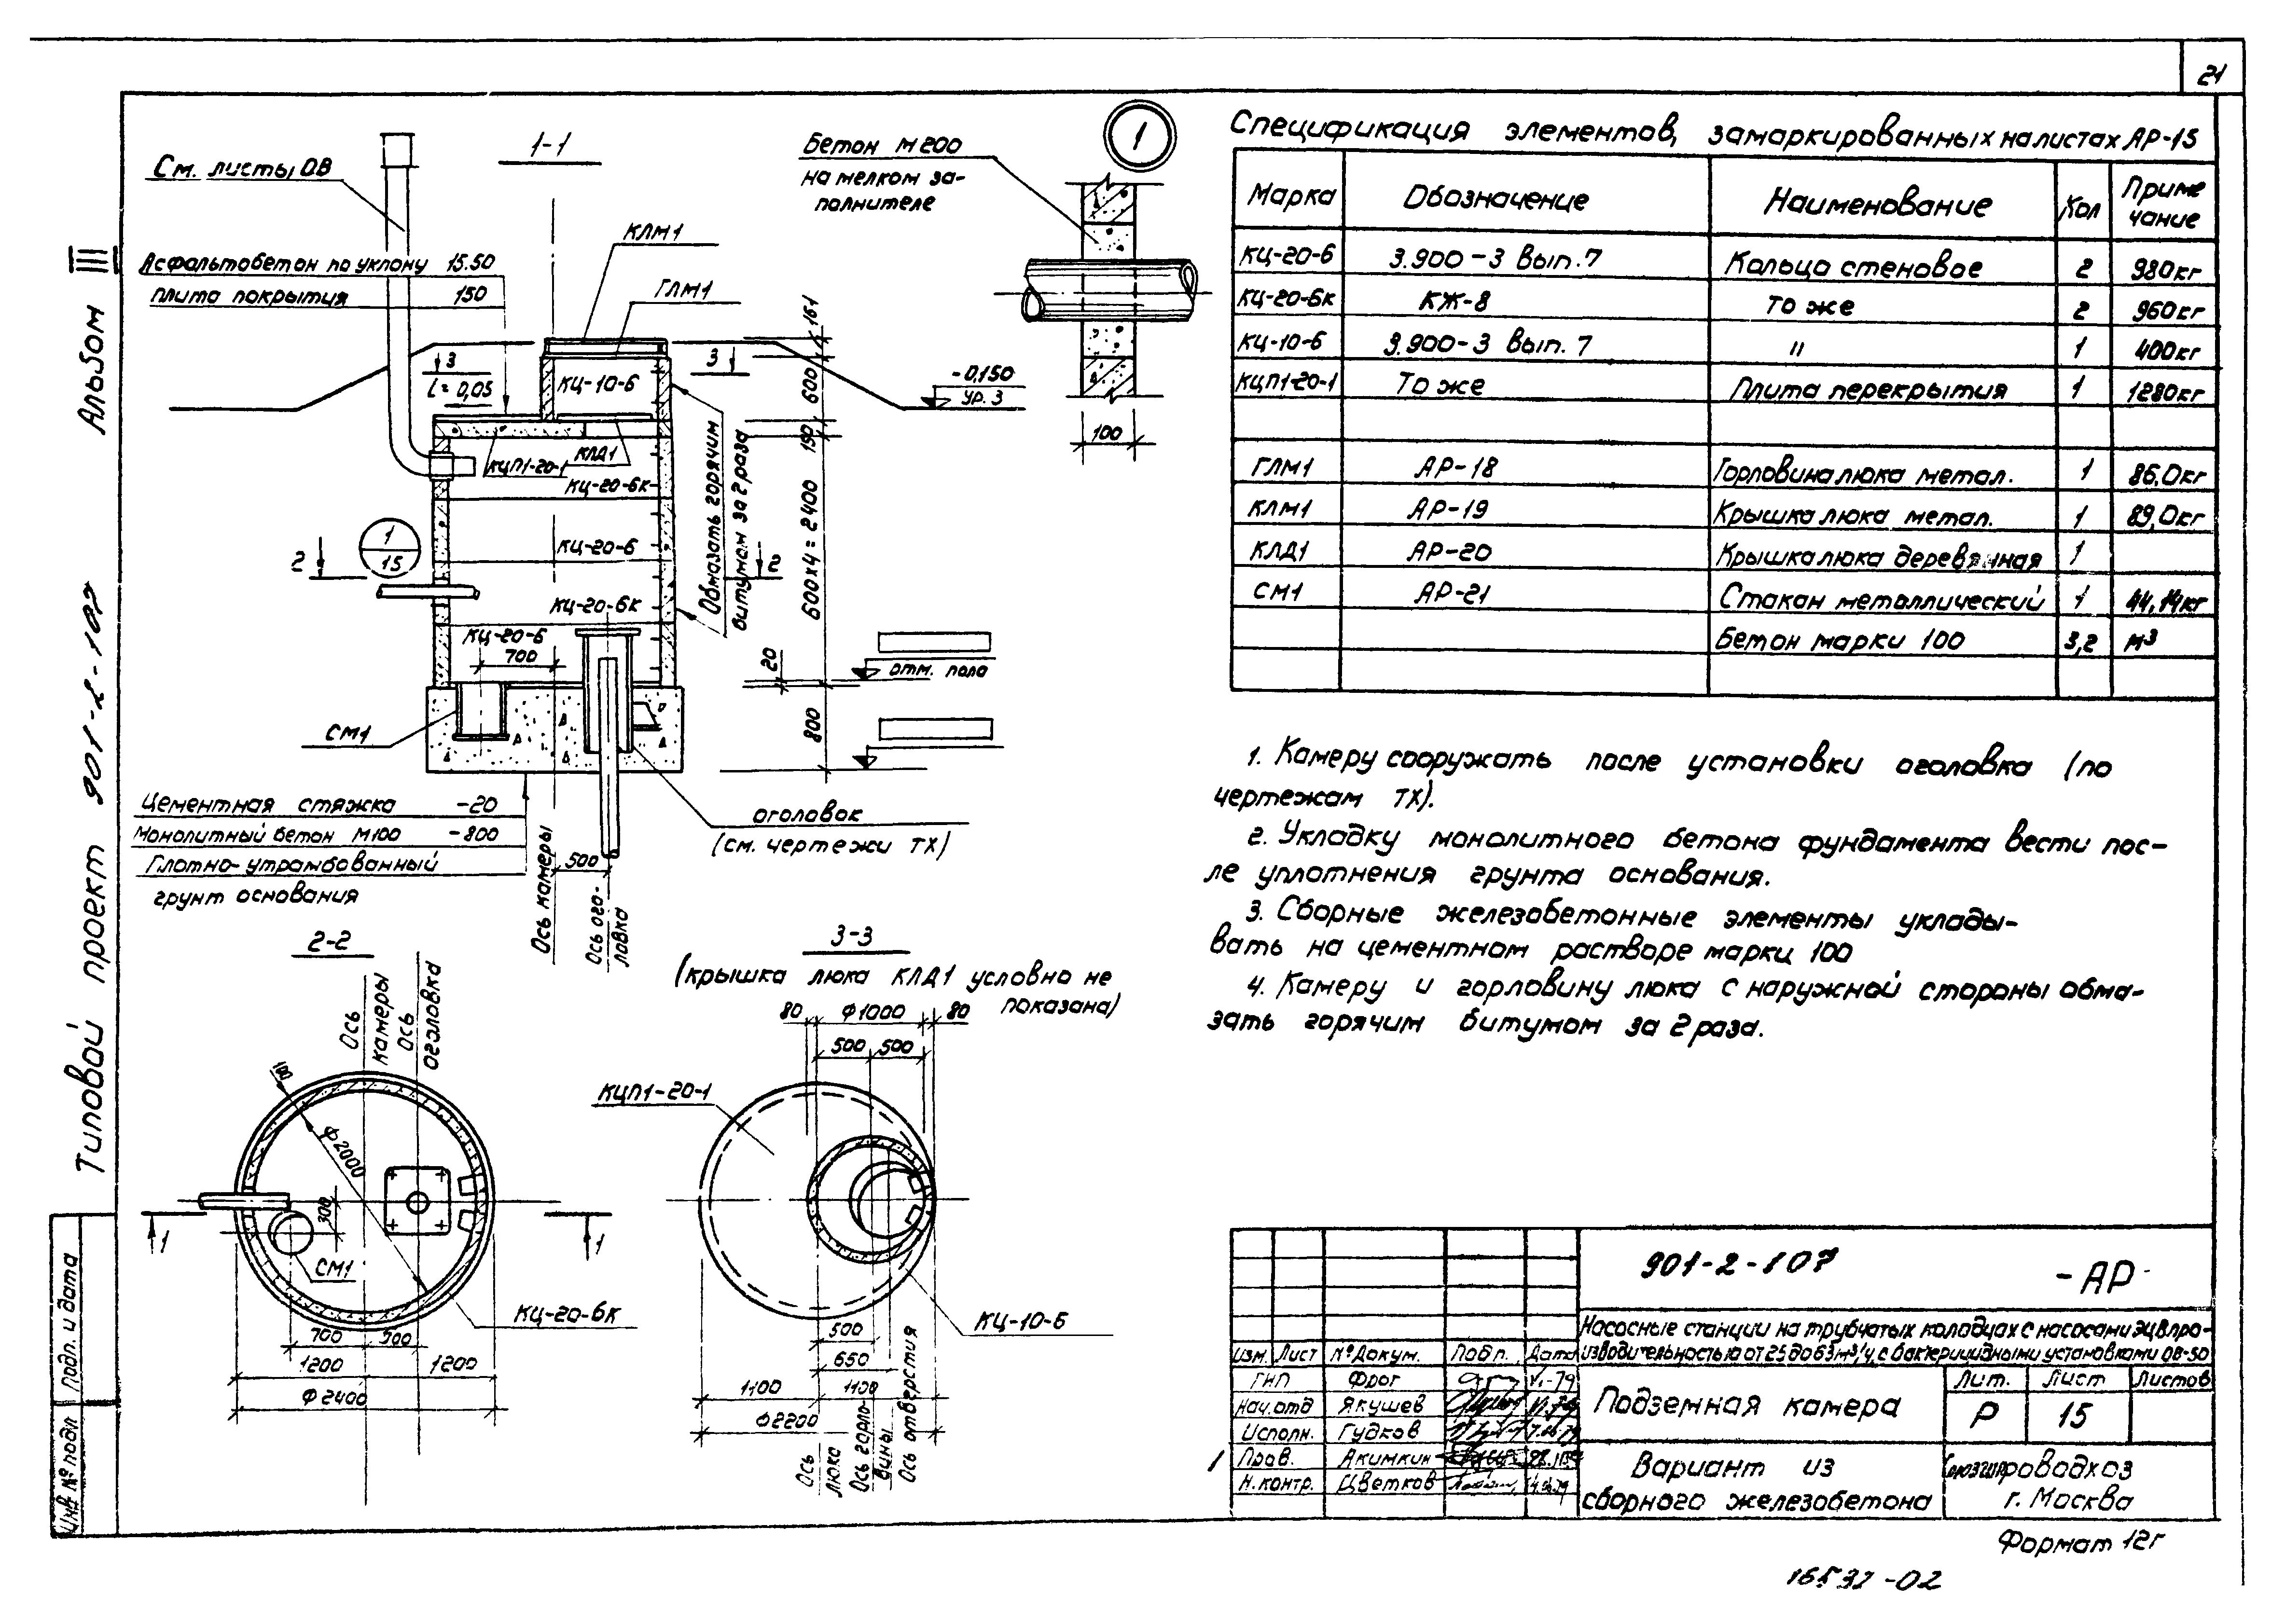 21
Альбом III
Типовой проект 901-2-107
Подп. и дата
Инв. № подл
1-1
См. листы ОВ
Асфальтобетон по уклону 15.50
плита покрытия 150
КЛМ1
ГЛМ1
3
3
L = 0,05
КЦ-10-6
КЦП1-20-1
КЛД1
КЦ-20-6к
КЦ-20-6
КЦ-20-6к
КЦ-20-6
700
1
15
2
2
Обмазать горячим
битумом за 2 раза
161
600
150
600х4=2400
20
800
-0,150
ур. 3
отм. пола
СМ1
Цементная стяжка -20
Монолитный бетон М100 -800
Плотно-утрамбованный
грунт основания
оголовок
(см. чертежи ТХ)
500
Ось камеры
Ось ого-
ловка
Бетон М200
на мелком за-
полнителе
1
100
2-2
Ось
камеры
Ось
оголовка
100
ф2000
300
1
1
СМ1
КЦ-20-6к
700
500
1200
1200
ф2400
3-3
(крышка люка КЛД1 условно не
показана)
80
ф1000
80
500
500
КЦП1-20-1
КЦ-10-6
500
650
1100
1100
ф2200
Ось
люка
Ось горло-
вины
Ось отверстия
Спецификация элементов, замаркированных на листах АР-15
Марка Обозначение Наименование Кол Приме
чание
КЦ-20-6 3.900-3 Вып. 7 Кольцо стеновое 2 980кг
КЦ-20-6к КЖ-8 То же 2 960кг
КЦ-10-6 3.900-3 Вып. 7 " 1 400кг
КЦП1-20-1 То же Плита перекрытия 1 1280кг
ГЛМ1 АР-18 Горловина люка метал. 1 86,0кг
КЛМ1 АР-19 Крышка люка метал. 1 89,0кг
КЛД1 АР-20 Крышка люка деревянная 1
СМ1 АР-21 Стакан металлический 1 44,14кг
Бетон марки 100 3,2 м3
1. Камеру сооружать после установки оголовка (по
чертежам ТХ).
2. Укладку монолитного бетона фундамента вести пос-
ле уплотнения грунта основания.
3. Сборные железобетонные элементы уклады-
вать на цементном растворе марки 100
4. Камеру и горловину люка с наружной стороны обма-
зать горячим битумом за 2 раза.
901-2-107 -АР
Насосные станции на трубчатых колодцах с насосами ЭЦВ про-
изводительностью от 25 до 63 м3/ч, с бактерицидными установками ОВ-50
Изм. Лист № Докум. Подп. Дата
ГИП Фрог VI-79
Нач.отд Якушев
Исполн. Гудков
Пров. Акимкин
Н.контр. Цветков
Подземная камера
Лит. Лист Листов
Р 15
Вариант из
сборного железобетона
Союзгипроводхоз
г. Москва
Формат 12г